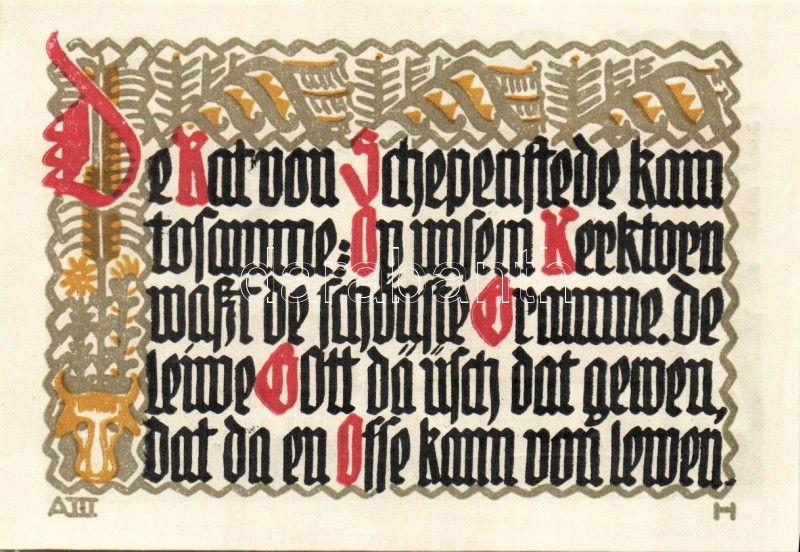 De Rat von Schepenstede kam
tosamme: Op unsem Kerktorn
waßt de schönste Gramme. de
leiwe Gott dä üsch dat gewen,
dat da en Osse kann von lewen.
AIII H
darabanth